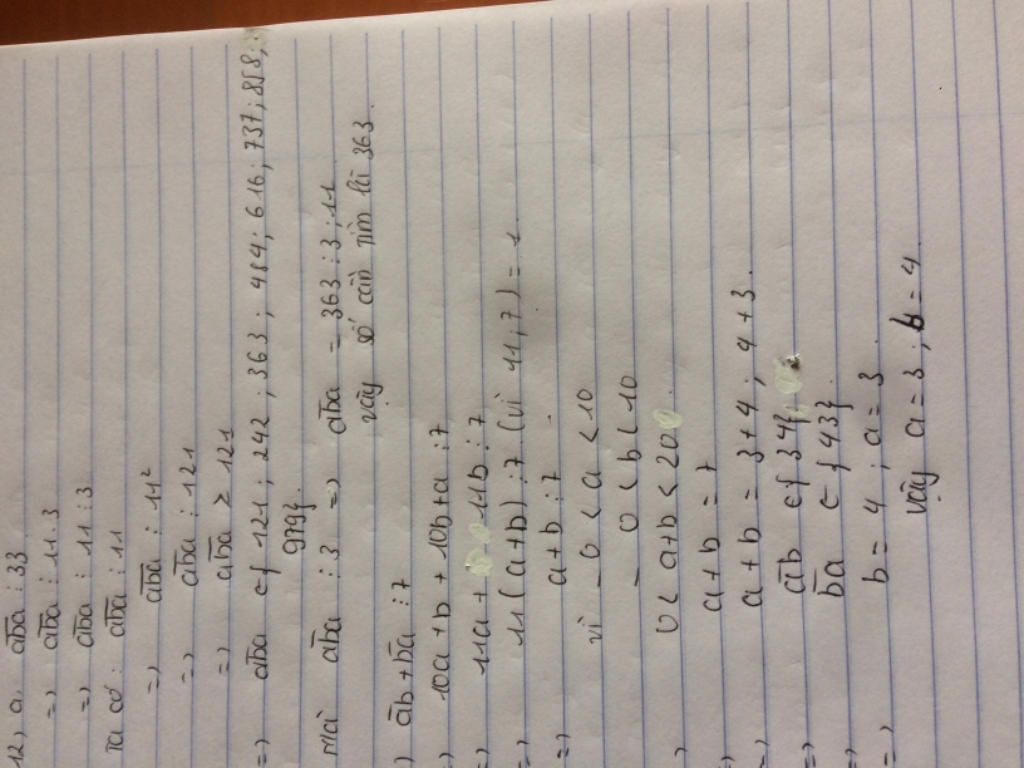 12, a, aba ⋮ 33
=> aba ⋮ 11.3
=> aba ⋮ 11 ⋮ 3
Ta có: aba ⋮ 11
=> aba ⋮ 11²
=> aba ⋮ 121
=> aba ≥ 121
=> aba ∈ {121; 242; 363; 484; 616; 737; 858;
999}
Mà aba ⋮ 3 => aba = 363 ⋮ 3 ⋮ 11
Vậy số cần tìm là 363.
) ab + ba ⋮ 7
=> 10a + b + 10b + a ⋮ 7
=> 11a + 11b ⋮ 7
=> 11(a+b) ⋮ 7 (vì 11; 7) = 1
=> a+b ⋮ 7
vì - 0 < a < 10
- 0 < b < 10
0 < a+b < 20
=> a + b = 7
=> a + b = 3+4; 4+3.
=> ab ∈ {34}
=> ba ∈ {43}
=> b = 4; a = 3.
Vậy a = 3, b = 4